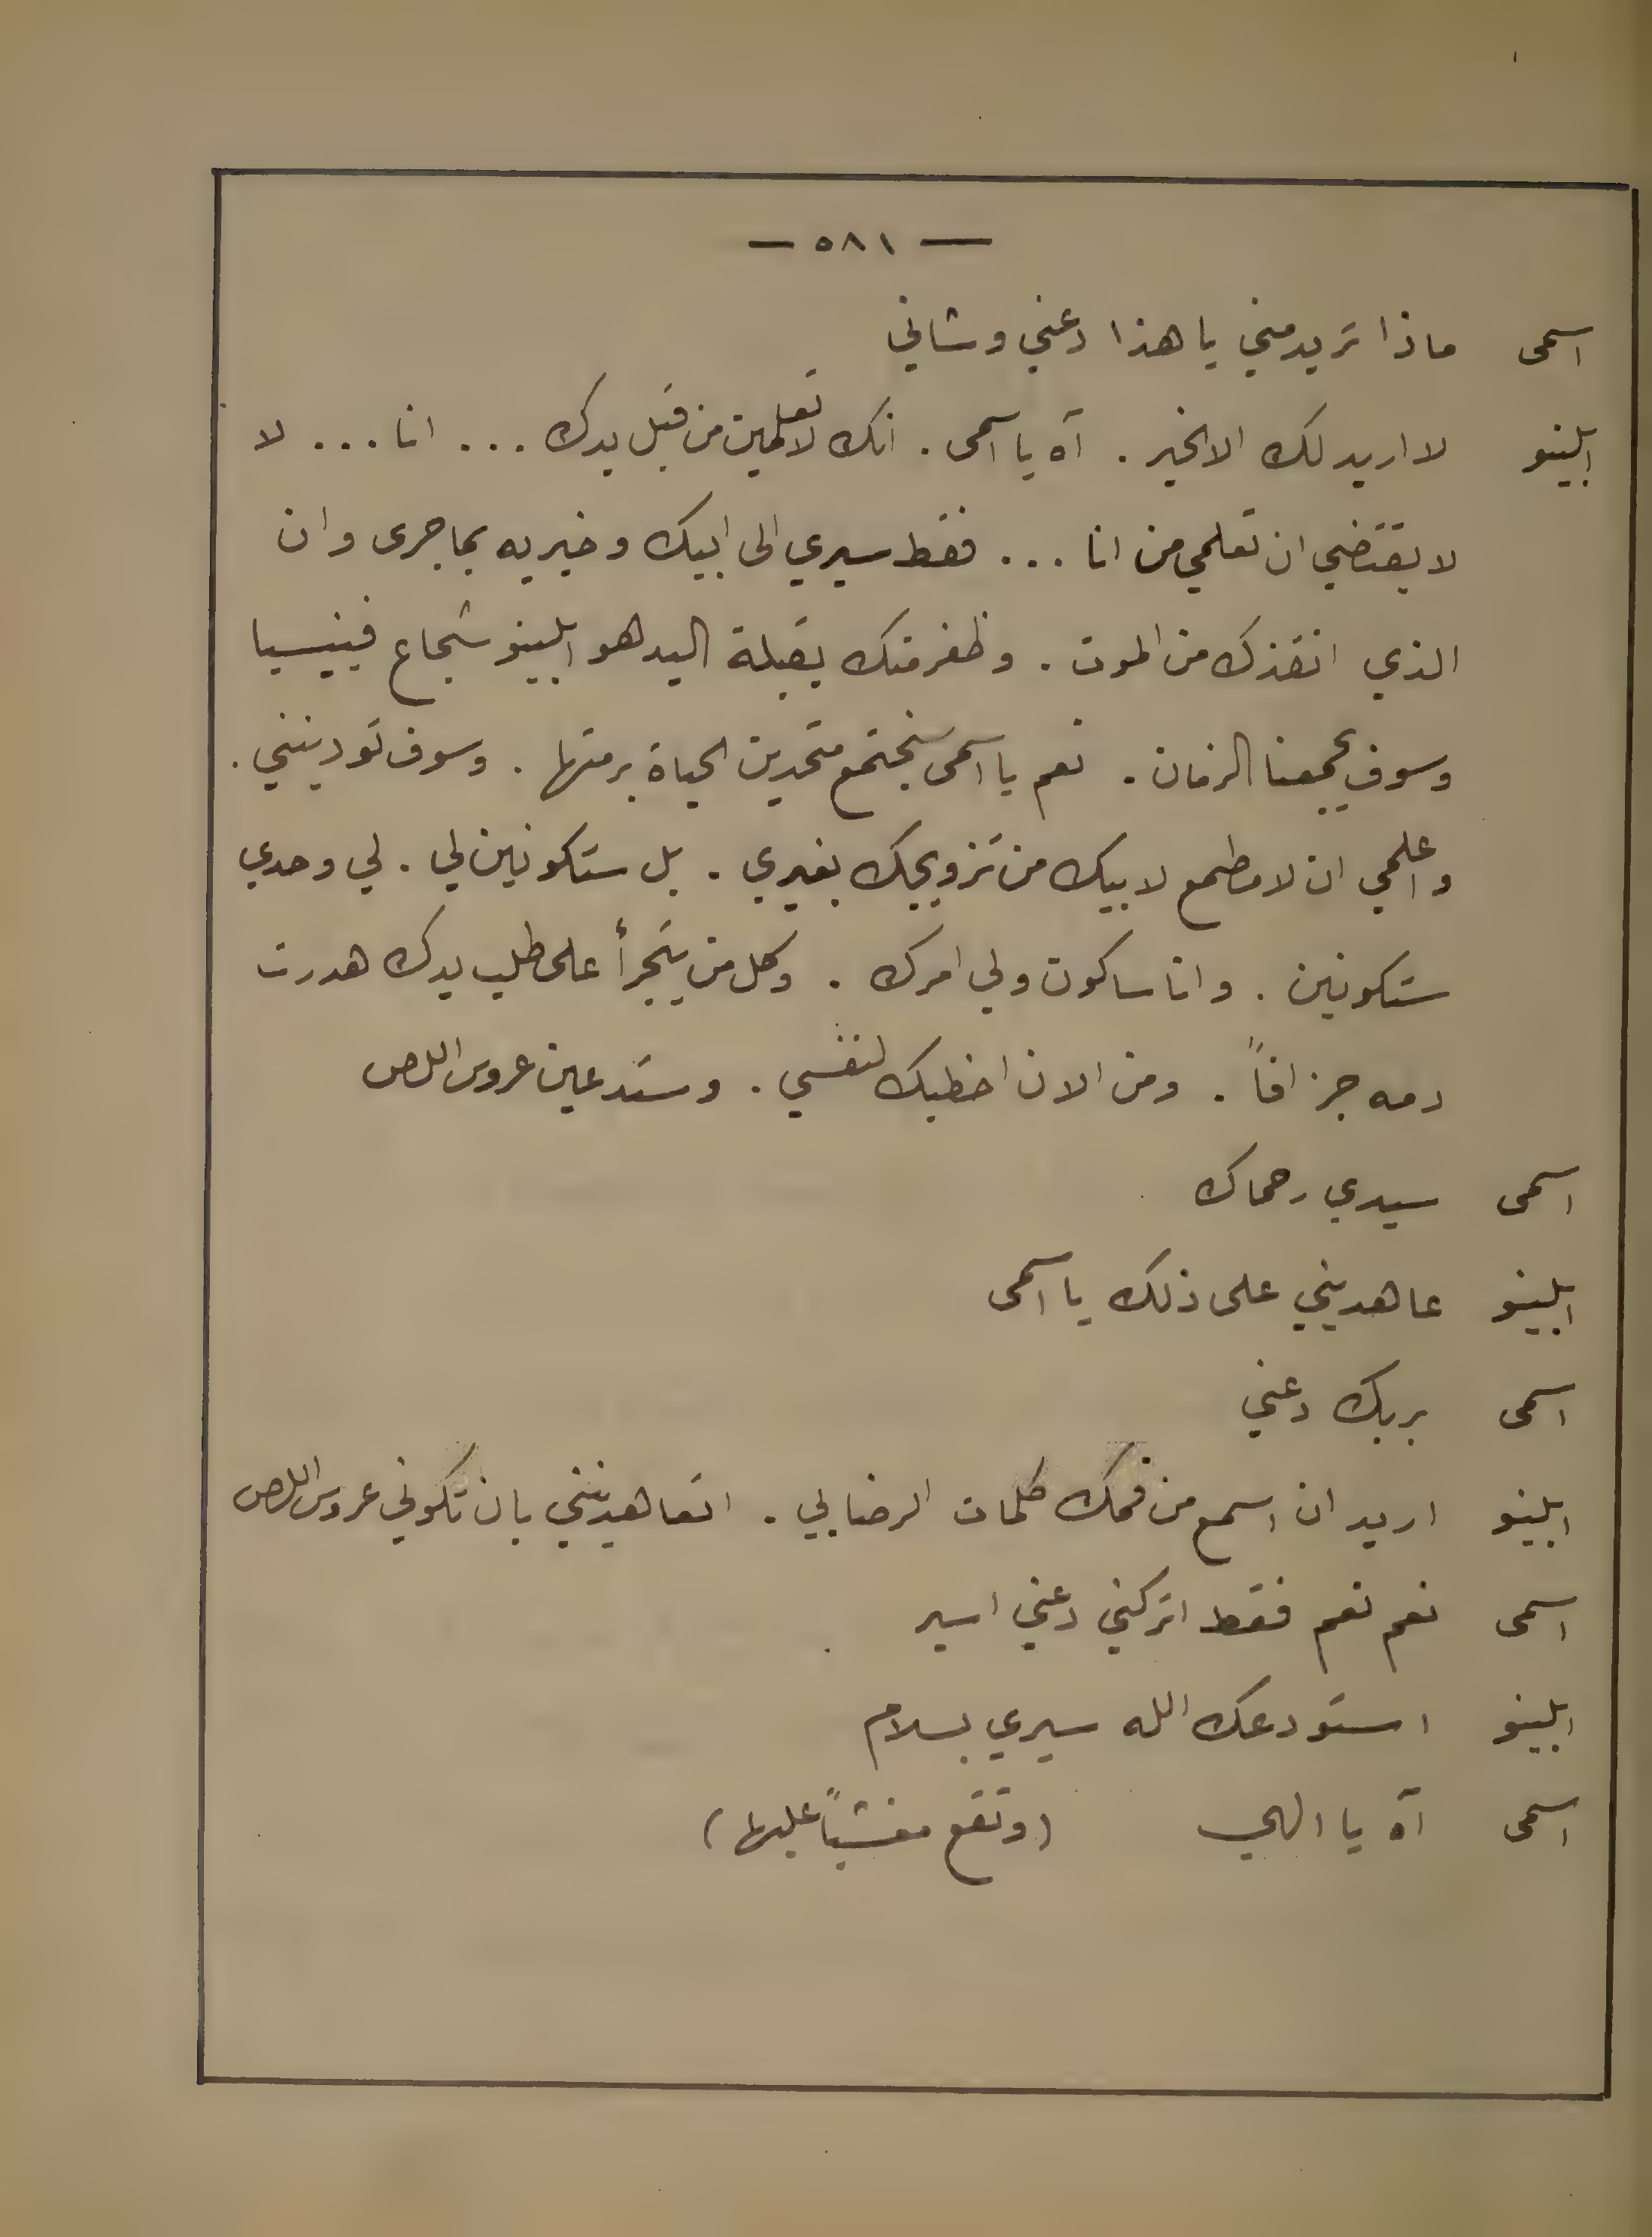 — ٥٨١ —
اسمى ماذا تريد مني يا هذا دعني وشاني
ابلينو لا اريد لك الا الخير . آه يا اسمى . انك لا تعلمين من قبل يدك ... انا ... لا
لا يقتضي ان تعلمي من انا ... فقط سيري الى ابيك وخبريه بما جرى وان
الذي انقذك من الموت . وظفر منك بقبلة اليد هو ابلينو شجاع فينيسيا
وسوف يجمعنا الزمان . نعم يا اسمى سنجتمع متحدين الحياة برمتها . وسوف تودينني .
واعلمي ان لا مطمع لابيك من تزويجك بغيري . بل ستكونين لي . لي وحدي
ستكونين . وانا ساكون ولي امرك . وكل من يتجرأ على طلب يدك هدرت
دمه جزافاً . ومن الان اخطبك لنفسي . وستدعين عروس اللص
اسمى سيدي رحماك
ابلينو عاهديني على ذلك يا اسمى
اسمى بربك دعني
ابلينو اريد ان اسمع من فمك كلمات الرضا بي . اتعاهدينني بان تكوني عروس اللص
اسمى نعم نعم فقط اتركني دعني اسير
ابلينو استودعك الله سيري بسلام
اسمى آه يا الهي (وتقع مغشياً عليها)